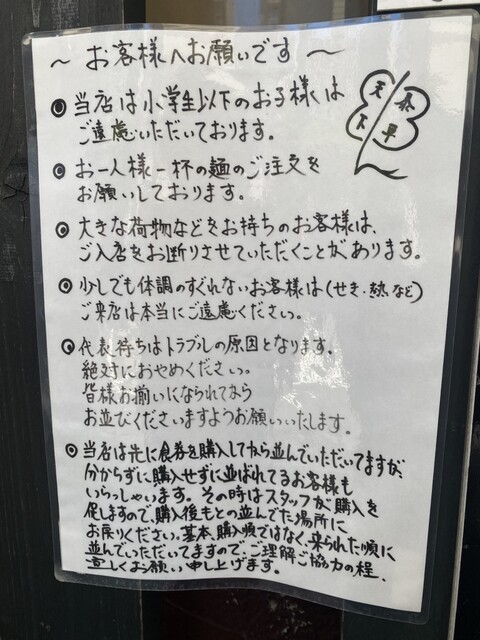 ～ お客様へお願いです ～
◎ 当店は小学生以下のお子様は
ご遠慮いただいております。
◎ お一人様一杯の麺のご注文を
お願いしております。
◎ 大きな荷物などをお持ちのお客様は、
ご入店をお断りさせていただくことがあります。
◎ 少しでも体調のすぐれないお客様は(せき・熱など)
ご来店は本当にご遠慮ください。
◎ 代表待ちはトラブルの原因となります。
絶対におやめください。
皆様お揃いになられてから
お並びくださいますようお願いいたします。
◎ 当店は先に食券を購入してから並んでいただいてますが、
分からずに購入せずに並ばれてるお客様も
いらっしゃいます。その時はスタッフが購入を
促しますので、購入後もとの並んでた場所に
お戻りください。基本、購入順ではなく、来られた順に
並んでいただいてますので、ご理解ご協力の程、
宜しくお願い申し上げます。